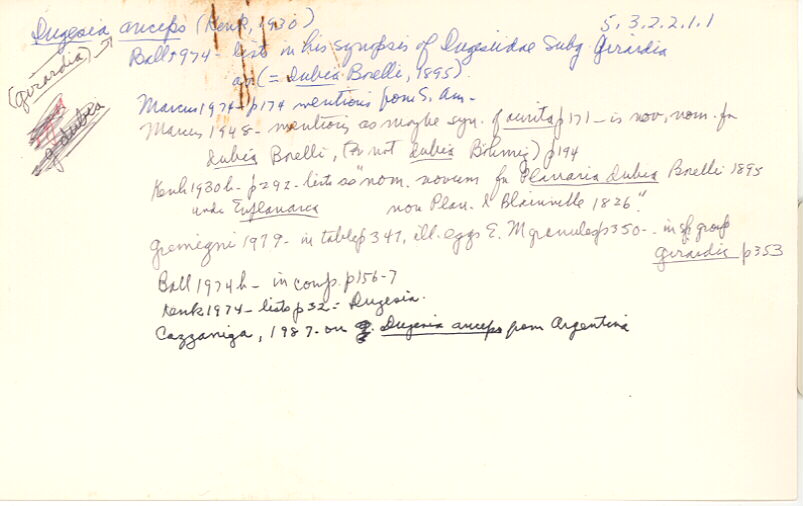 Dugesia anceps (Kenk, 1930) 5.3.2.2.1.1
(Girardia)
Ball 1974- lists in his synopsis of Dugesiidae Subg Girardia
(= dubia Borelli, 1895).
Marcus 1974- p174 mentions from S. Am.
Marcus 1948- mentions as maybe syn. of aurita p171 - is nov. nom. for
dubia Borelli, (not dubia Böhmig) p194
Kenk 1930b- p292- lists as "nom. novum for Planaria dubia Borelli 1895
under Euplanaria non Plan. d. Blainville 1826".
Gremigni 1979- in table p347, ill. eggs E. M granules p350- in sp. group
Girardia p353
Ball 1974b- in comp. p156-7
Kenk 1974- lists p32 = Dugesia.
Cazzaniga, 1987- on Dugesia anceps from Argentina
g. dubia